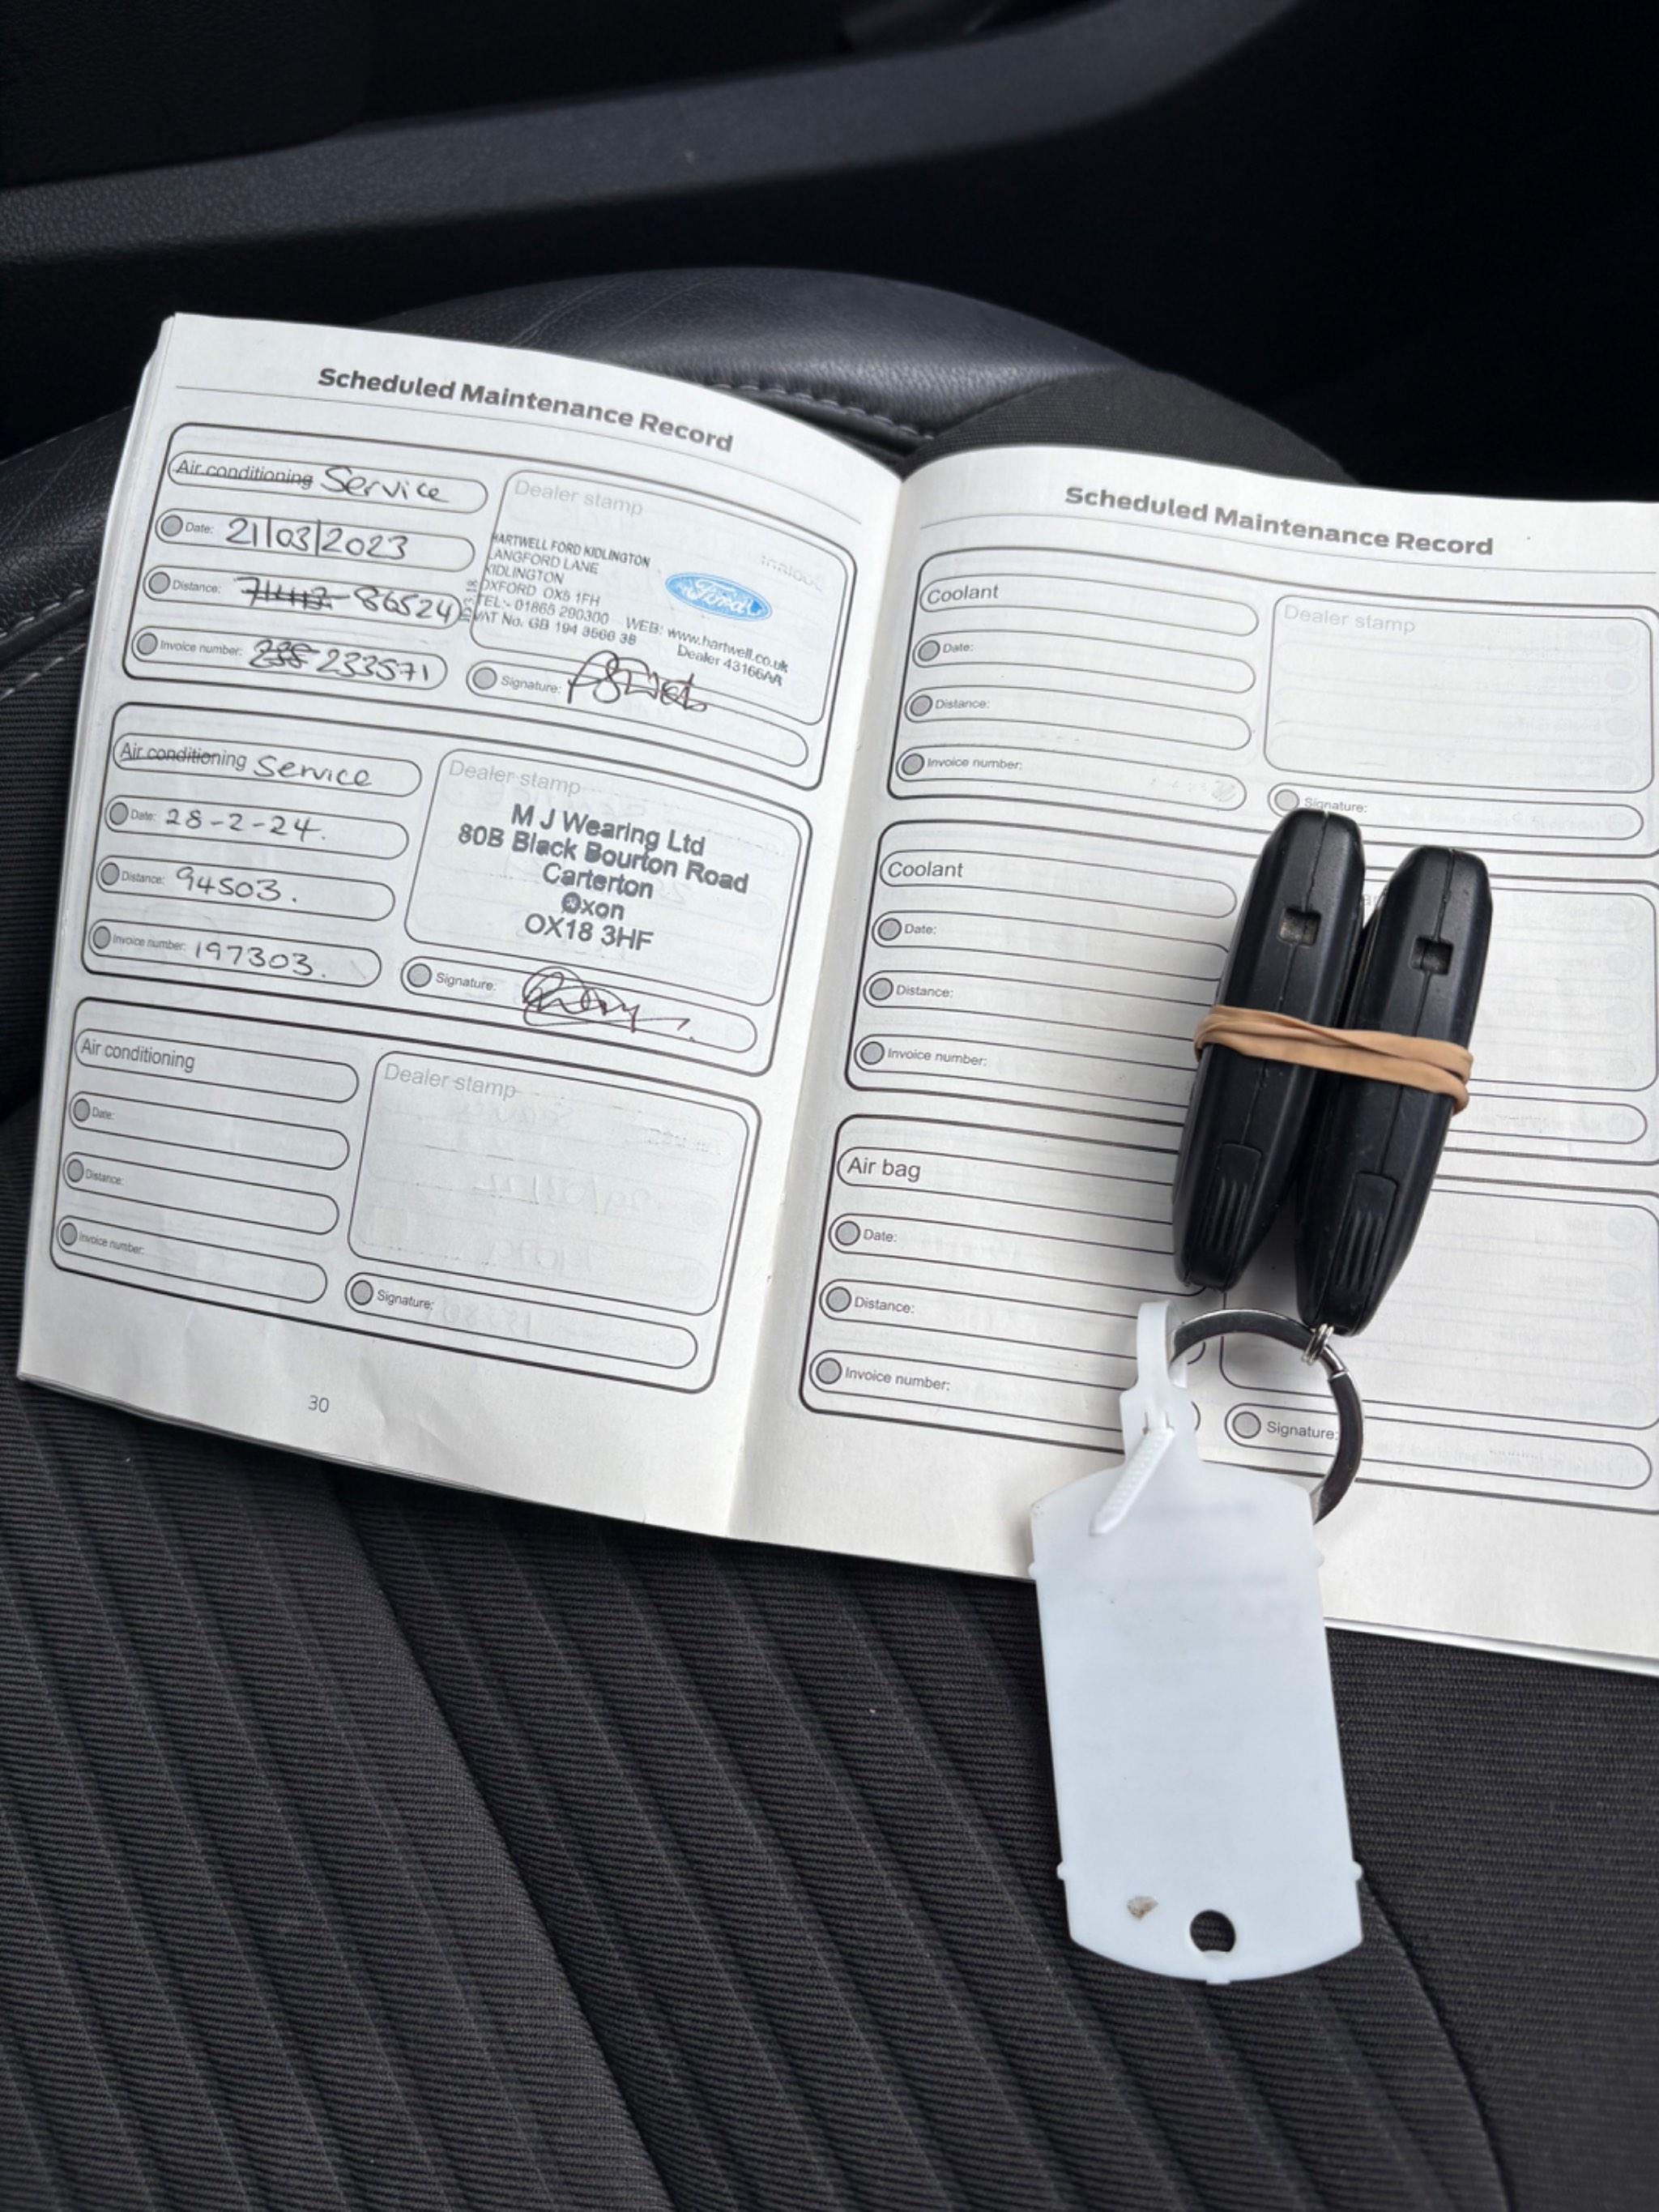 Scheduled Maintenance Record
Air conditioning Service
Date: 21/03/2023
Distance: 86524
Invoice number: 233571
Dealer stamp
HARTWELL FORD KIDLINGTON
LANGFORD LANE
KIDLINGTON
OXFORD OX5 1FH
TEL:- 01865 290300 WEB: www.hartwell.co.uk
VAT No. GB 194 3566 38 Dealer 43166AA
Ford
Signature:
Air conditioning Service
Date: 28-2-24.
Distance: 94503.
Invoice number: 197303.
Dealer stamp
M J Wearing Ltd
80B Black Bourton Road
Carterton
Oxon
OX18 3HF
Signature:
Air conditioning
Date:
Distance:
Invoice number:
Dealer stamp
Signature:
30
Scheduled Maintenance Record
Coolant
Date:
Distance:
Invoice number:
Dealer stamp
Signature:
Coolant
Date:
Distance:
Invoice number:
Air bag
Date:
Distance:
Invoice number:
Signature: